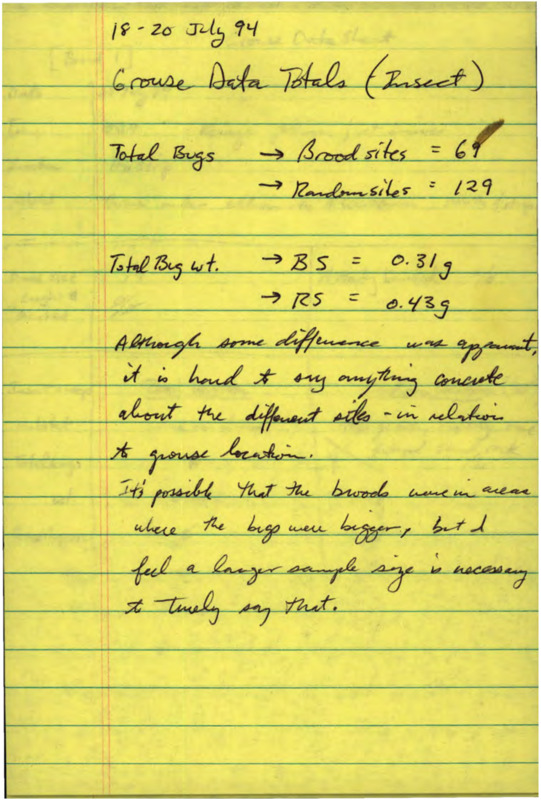 18-20 July 94
Grouse Data Totals (Insect)
Total Bugs → Brood sites = 69
→ Random sites = 129
Total Bug wt. → BS = 0.31g
→ RS = 0.43g
Although some difference was apparent,
it is hard to say anything concrete
about the different sites - in relation
to grouse location.
It's possible that the broods were in areas
where the bugs were bigger, but I
feel a larger sample size is necessary
to say that.